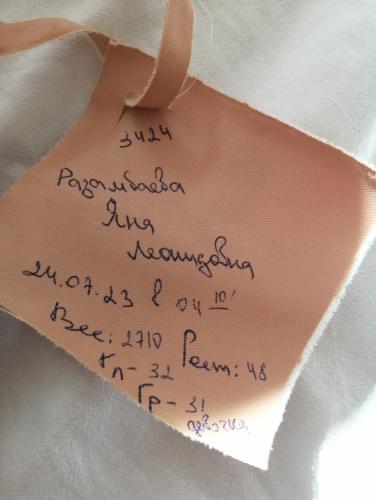 3424
Разамбаева
Яна
Леонидовна
24.07.23 в 04 10'
Вес: 2710 Рост: 48
Гл - 32
Гр - 31
девочка